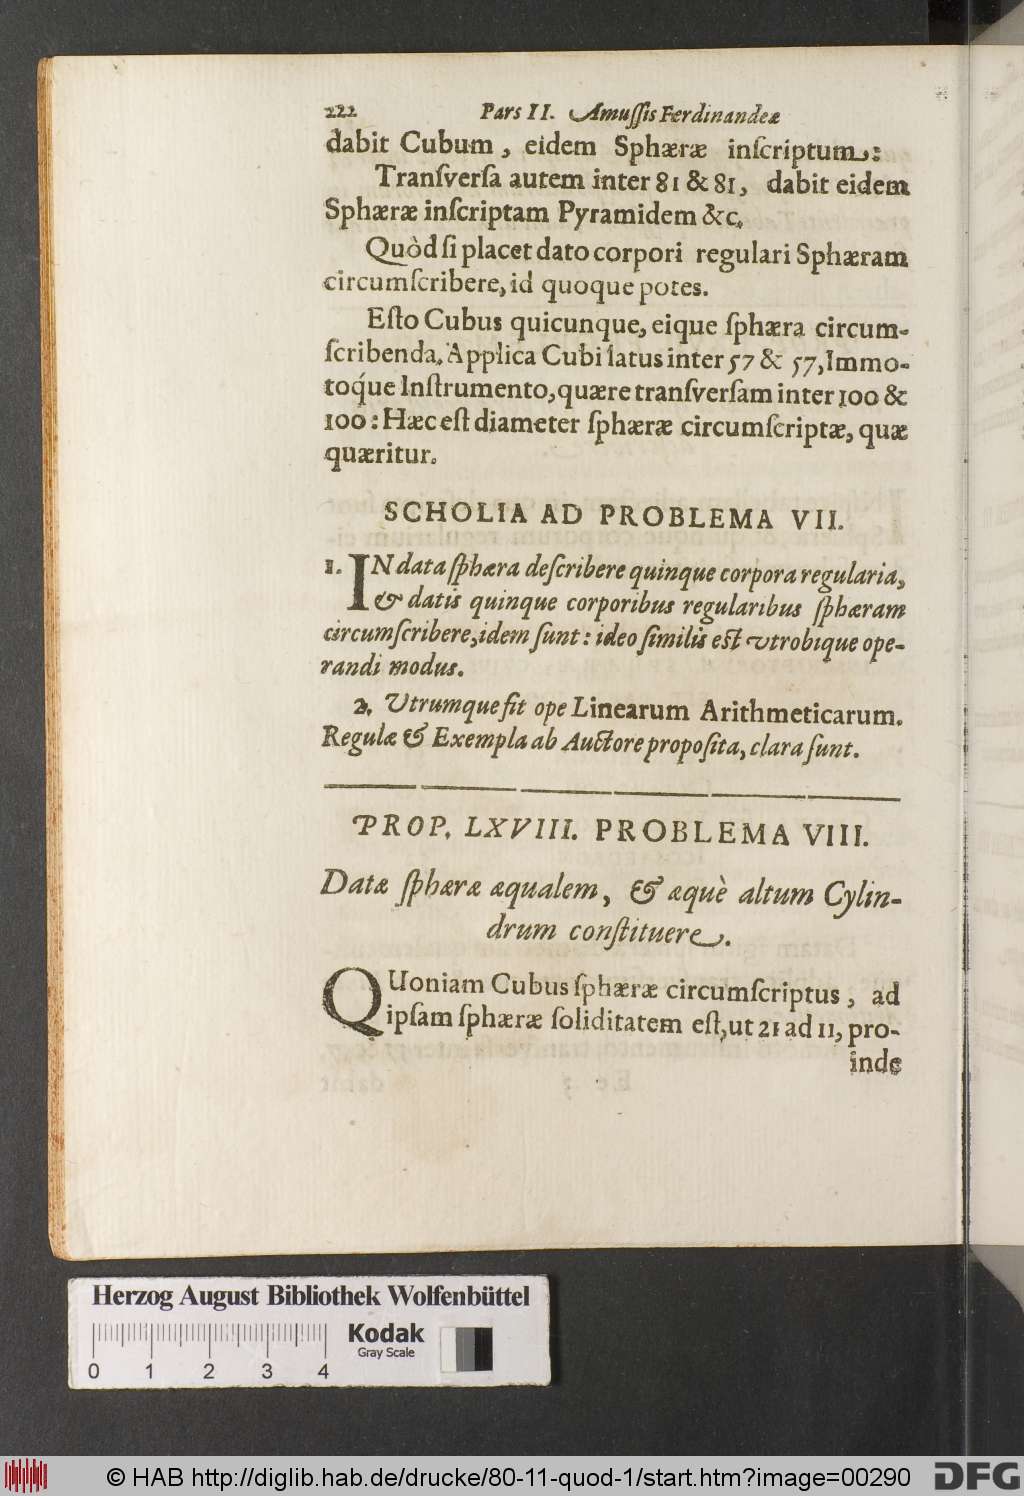 222 Pars II. Amuſſis Ferdinandeæ
dabit Cubum, eidem Sphæræ inſcriptum:
Tranſverſa autem inter 81 & 81, dabit eidem
Sphæræ inſcriptam Pyramidem &c.
Quòd ſi placet dato corpori regulari Sphæram
circumſcribere, id quoque potes.
Eſto Cubus quicunque, eique ſphæra circum-
ſcribenda. Applica Cubi latus inter 57 & 57, Immo-
toq́ue Inſtrumento, quære tranſverſam inter 100 &
100: Hæc eſt diameter ſphæræ circumſcriptæ, quæ
quæritur.
SCHOLIA AD PROBLEMA VII.
1. IN data ſphæra deſcribere quinque corpora regularia,
& datis quinque corporibus regularibus ſphæram
circumſcribere, idem ſunt: ideo ſimilis eſt vtrobique ope-
randi modus.
2. Utrumque fit ope Linearum Arithmeticarum.
Regulæ & Exempla ab Auctore propoſita, clara ſunt.
PROP. LXVIII. PROBLEMA VIII.
Datæ ſphæræ æqualem, & æquè altum Cylin-
drum conſtituere.
QUoniam Cubus ſphæræ circumſcriptus, ad
ipſam ſphæræ ſoliditatem eſt, ut 21 ad 11, pro-
inde
Herzog August Bibliothek Wolfenbüttel
Kodak
Gray Scale
0 1 2 3 4
© HAB http://diglib.hab.de/drucke/80-11-quod-1/start.htm?image=00290
DFG